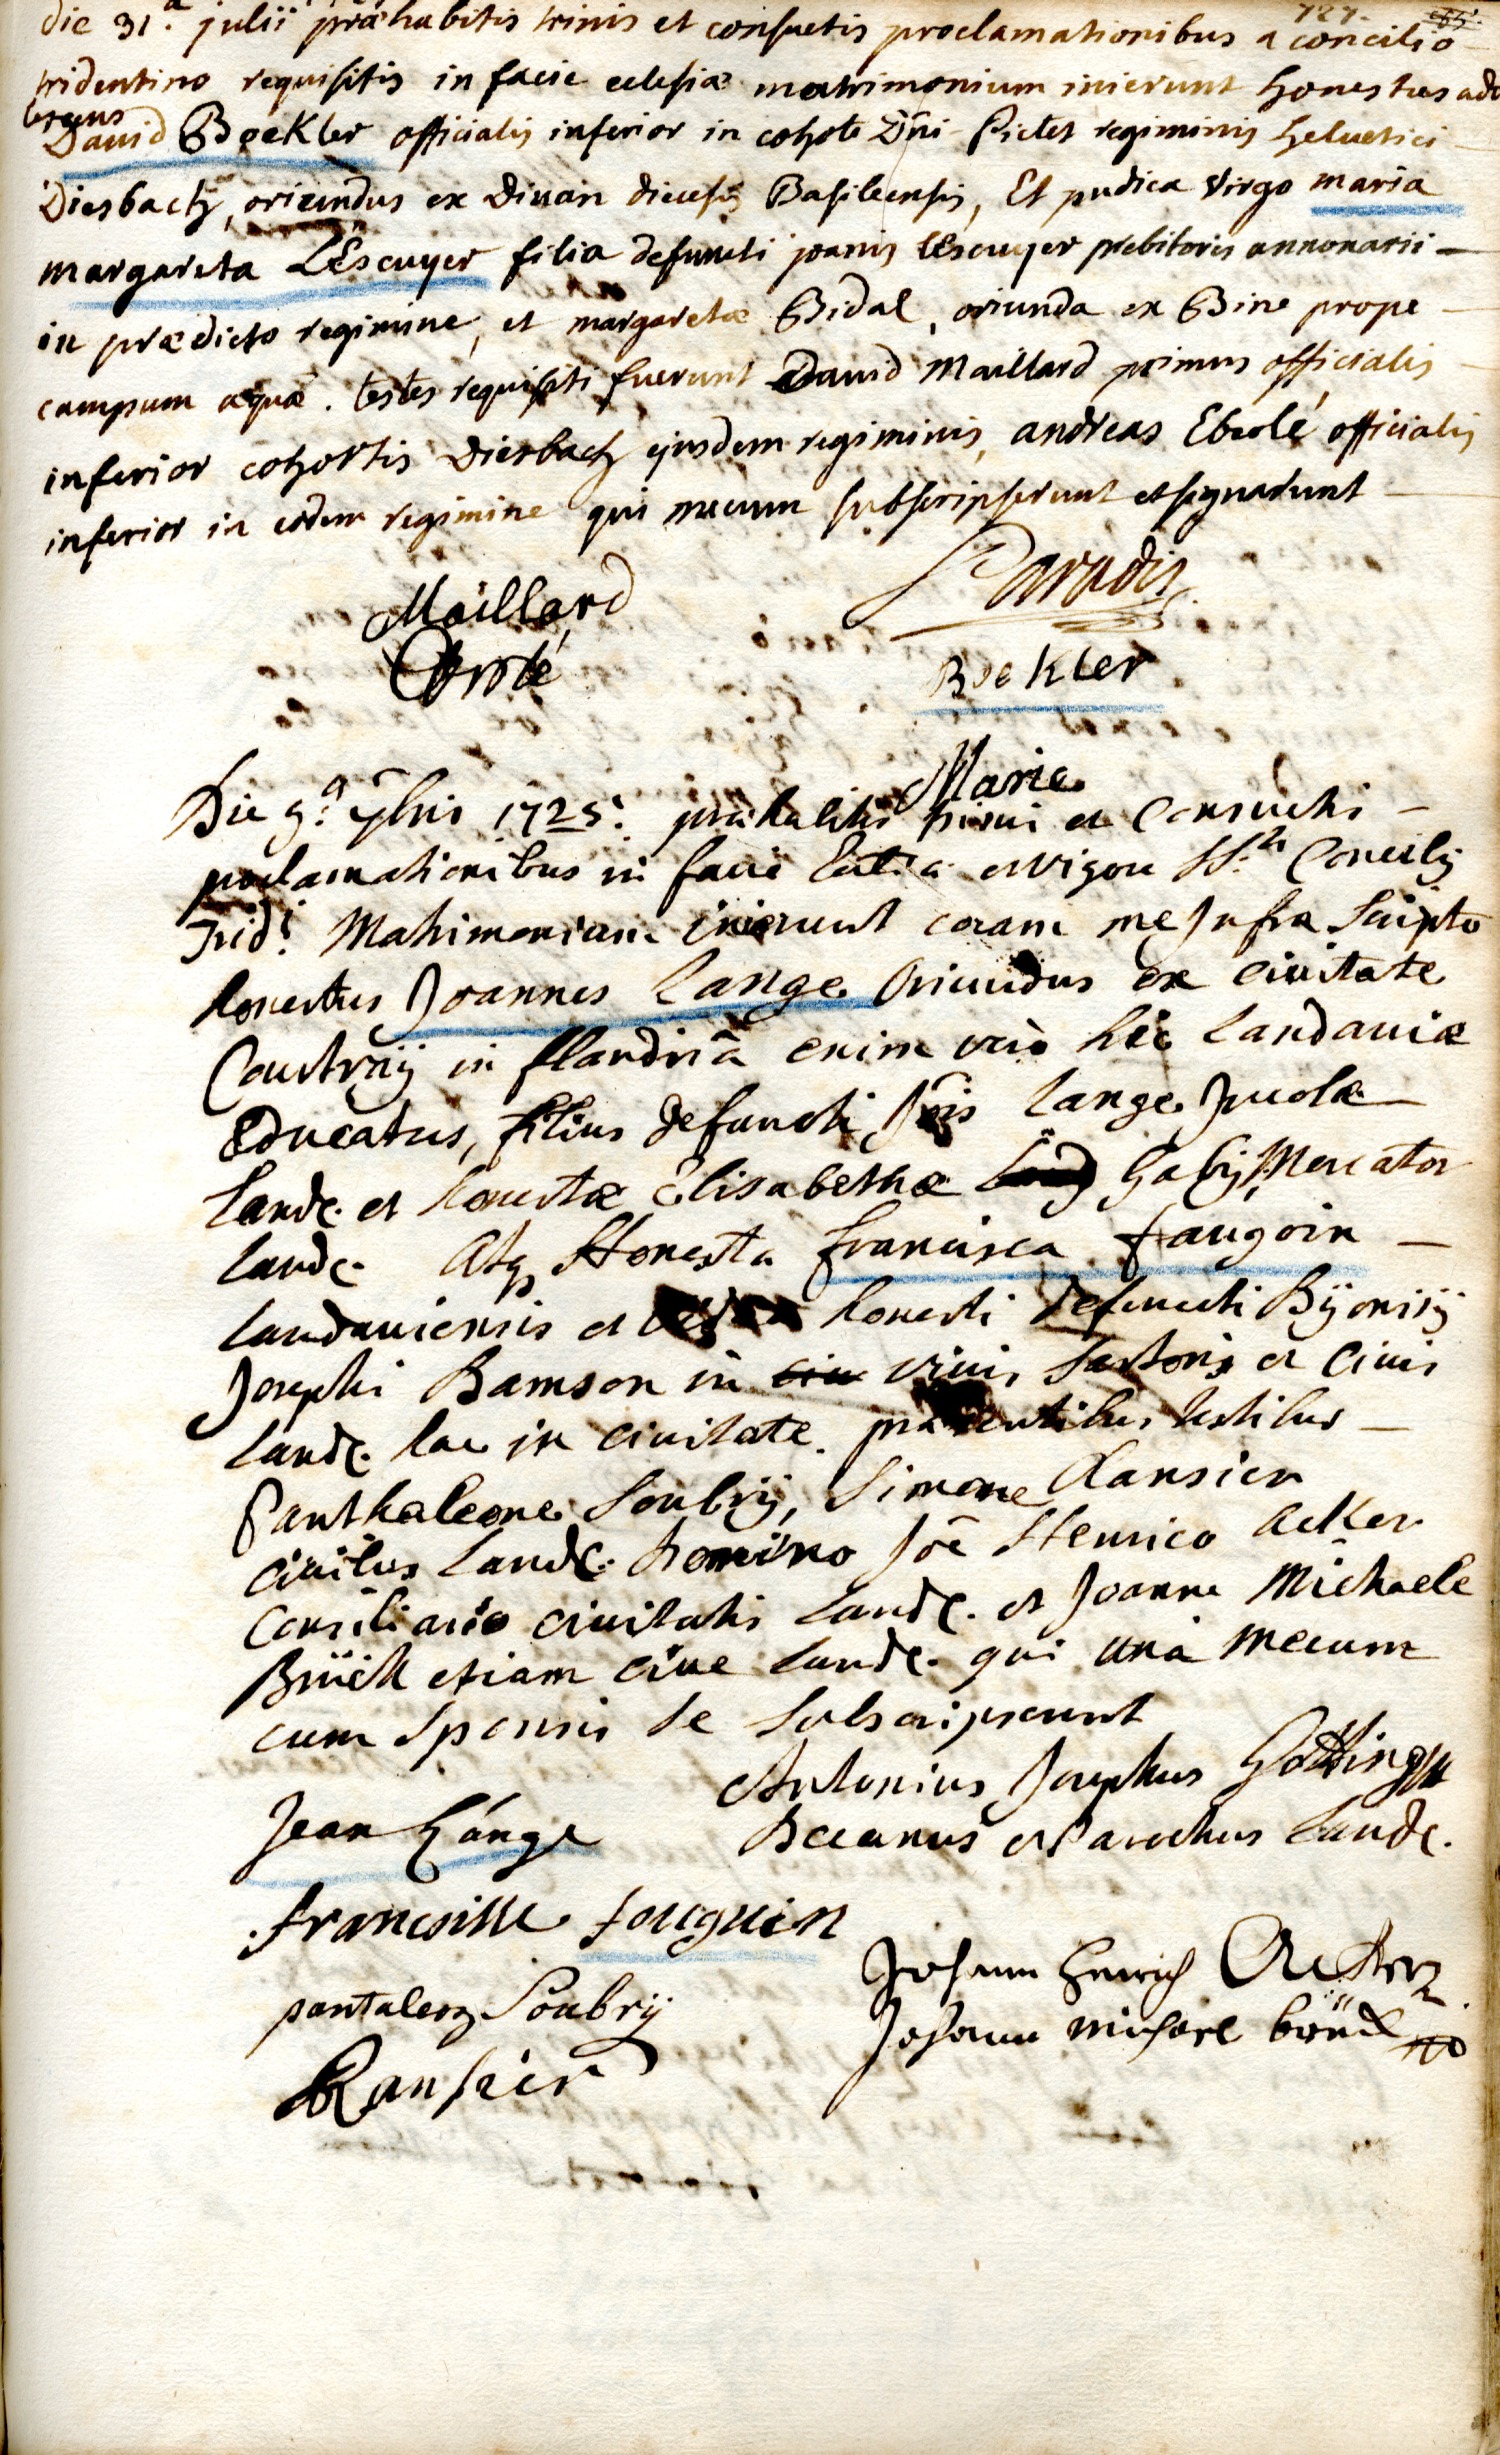 727.
die 31.a julii præhabitis trinis et consuetis proclamationibus a concilio
tridentino requisitis in facie eclesiæ matrimonium inierunt honestus ado
lescens
David Boekler officialis inferior in cohote Dni Pictet regiminis helvetici
Diesbach, oriundus ex Divan diecesis Basileensis, Et pudica virgo maria
margareta LEscuyer filia defuncti joanis lescuyer prebitoris annonarii
in prædicto regimine, et margaretæ Bidal, oriunda ex Bine prope
campum aquæ. testes requisiti fuerunt David Maillard primus officialis
inferior cohortis Diesbach ejusdem regiminis, andreas Ebrolé officialis
inferior in eodem regimine qui mecum subscripserunt et signarunt
Paradis
Maillard
Ebrolé
Boekler
Marie
Die 9.a 7bris 1725. præhabitis trinis et Consuetis
proclamationibus in facie Eccl a et vigore SS. Concilij
Trid. Matrimonium inierunt coram me Infra Scripto
honestus Joannes Lange Oriundus ex civitate
Courtraij in flandriâ enim verò hic Landaviæ
Educatus, filius defuncti Jois Lange Incolæ
Landc. et honestæ Elisabethæ Gabij Mercator
Landc. Atq Honesta francisca faugoin
landaviensis et honesti defuncti Bijonisij
Josephi Bamson in vivis Sartoris et Civis
Landc. hac in civitate. præsentibus testibus
Panthaleone Soubrij, Simone Ransier
civibus Landc. Domino Joê Henrico Acker
Consiliario civitatis Landc. et Joanne Michaele
Brück etiam cive Landc. qui unà mecum
cum Sponsis se Subscripserunt
Antonius Josephus Göttingh
Decanus et Parochus Landc.
Jean Lange
francoisse fouguin
Johann Henrich Acker
pantaleon Soubrij
Johann michael brück
Ransier